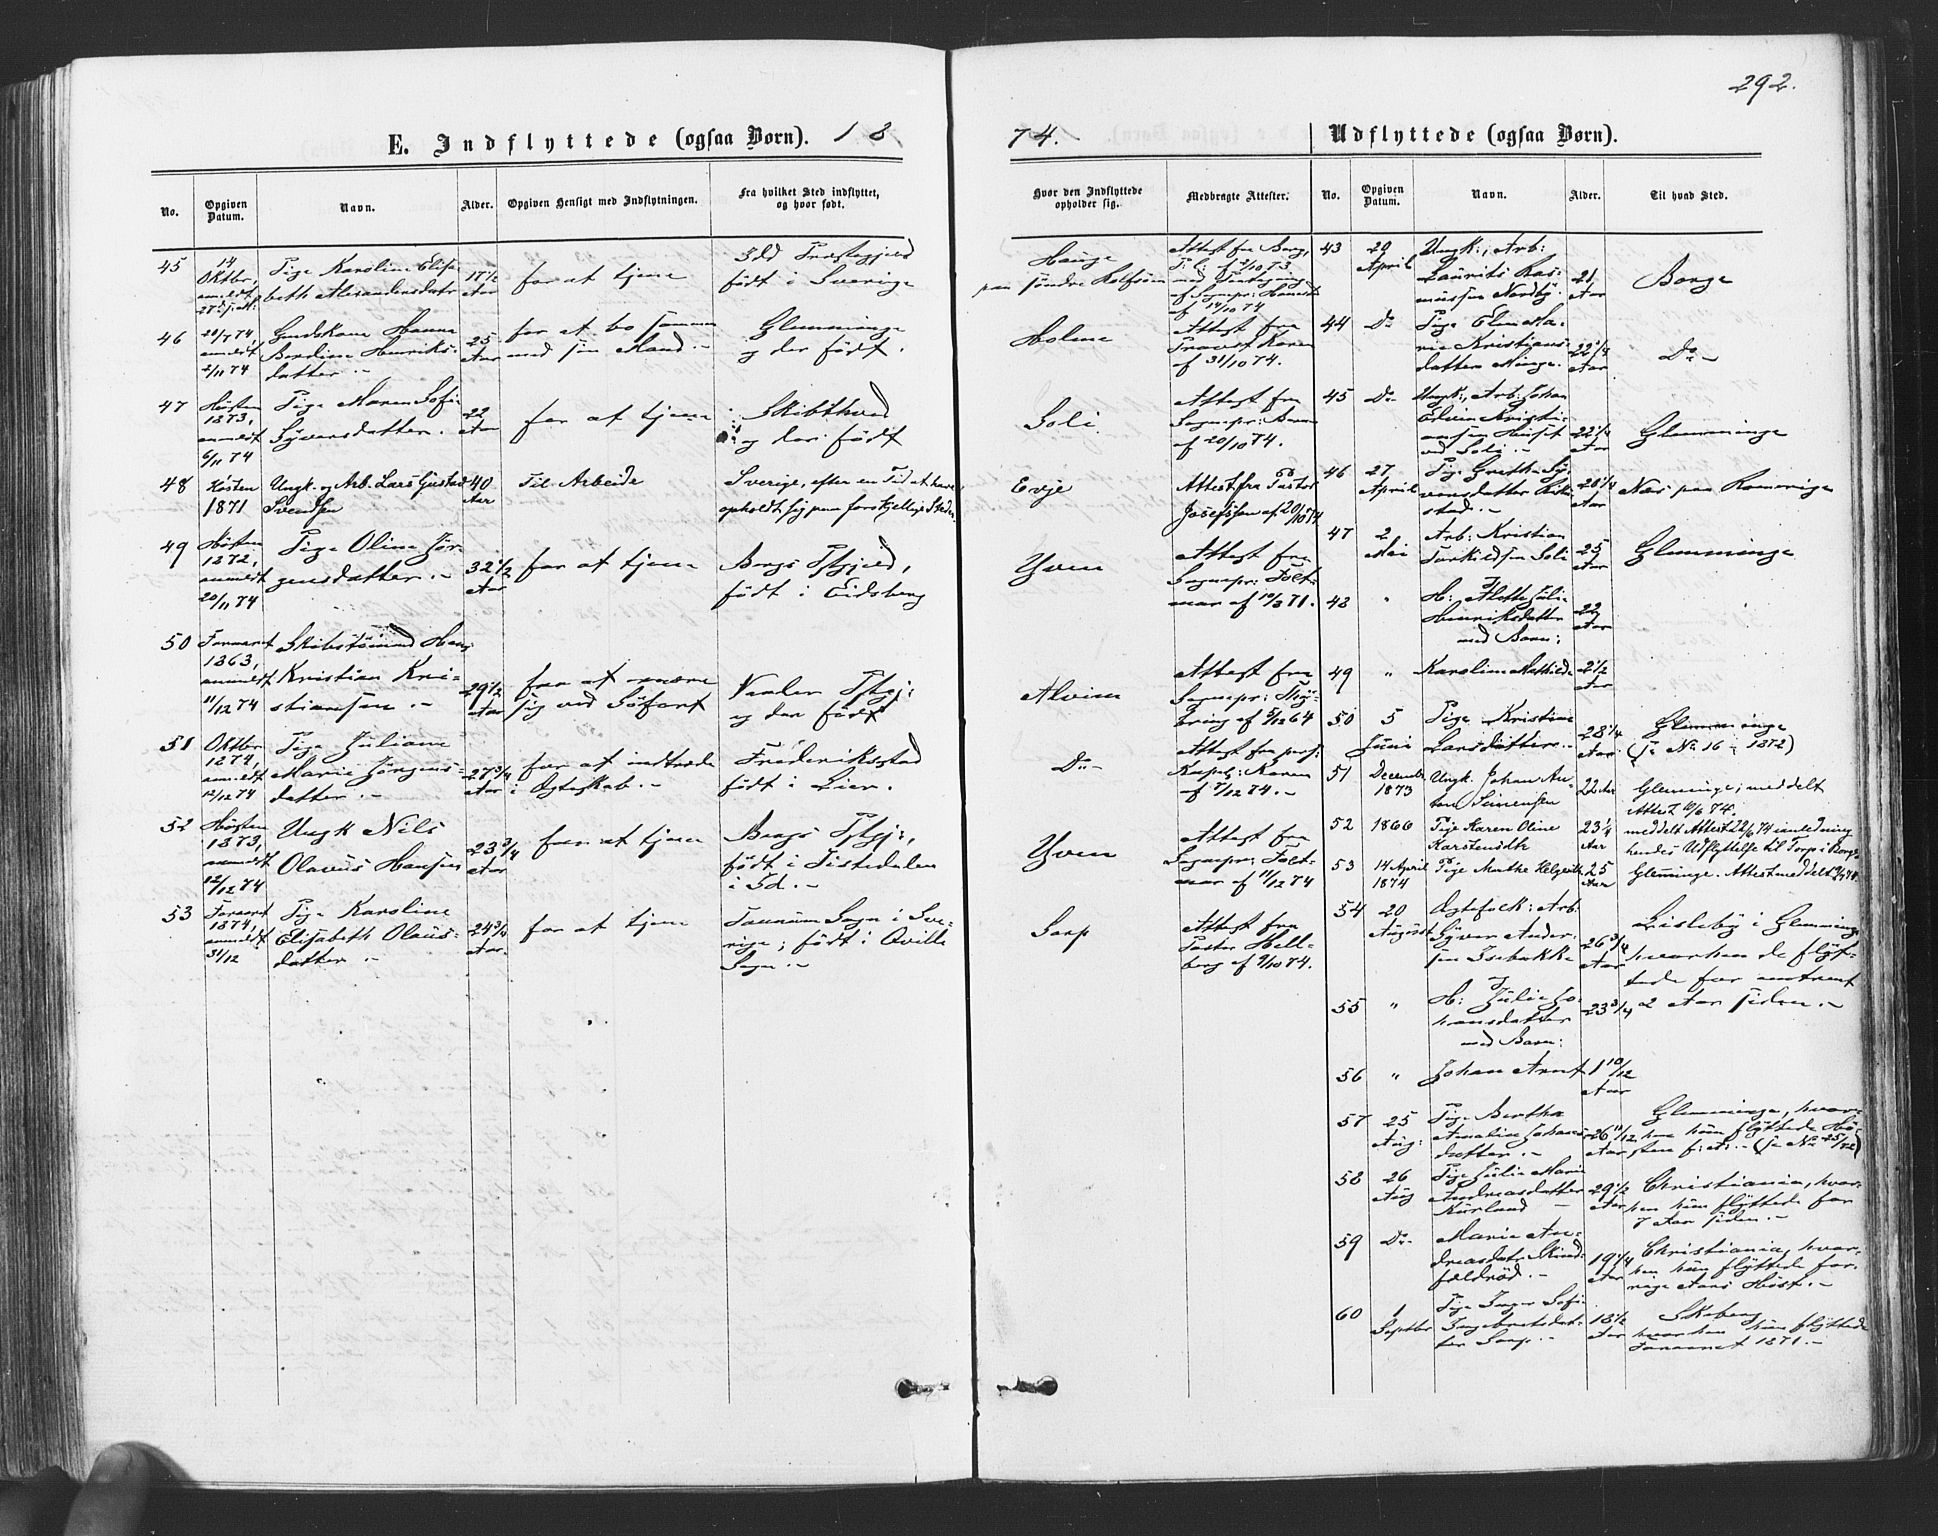 292.
E. Indflyttede (ogsaa Børn). 18
74. Udflyttede (ogsaa Børn).
No.
Opgiven Datum.
Navn.
Alder.
Opgiven Hensigt med Indflytningen.
Fra hvilket Sted indflyttet,
og hvor født.
Hvor den Indflyttede
opholder sig.
Medbragte Attester.
No.
Opgiven Datum.
Navn.
Alder.
Til hvad Sted.
45
14
Oktbr,
anmeldt
Pige Karoline Elisa-
beth Alexandersdatr
17 1/2
Aar
for at tjene
Idd Præstegjeld
født i Sverige
Hauge
paa søndre
Attest fra Borg,
af 14/10 74
46
20/7 74,
anmeldt
2/11 74
Hanna
Berdine Henriks-
datter.-
25
Aar
for at bo sammen
med sin Mand.-
Glemminge
og der født.
Holme
Attest fra
Provst Karen
af 31/10 74.
47
Høsten
1873,
anmeldt
6/11 74
Pige Maren Sofie
Syversdatter.
22
Aar
for at tjene
Skibthved
og der født
Soli.
Attest fra
Sognepr:
af 20/10 74.
48
Høsten
1871
Ungk. og Arb. Lars Gustad
Svendsen
40
Aar
Til Arbeide
Sverige, efter en Tid at have
opholdt sig paa forskjellige Steder.
Evje
Attest fra Pastor
Josefsson af 20/10 74
49
Høsten
1872,
anmeldt
20/11 74
Pige Oline Jør-
gensdatter.-
32 1/2
Aar
for at tjene
Borgs Pstgjeld,
født i Eidsberg
Yven
Attest fra
Sognepr: Folt-
mar af 10/3 71.
50
Foraaret
1863,
anmeldt
11/12 74
Skibstømmd Hans
Kristian Kri-
stiansen.-
29 1/2
Aar
for at nære
sig ved Søfart
Pstgj:
og der født
Alvim
Attest fra
Sognepr:
af 5/12 64
51
Oktbr
1874,
anmeldt
12/12 74
Pige Juliane
Marie Jørgens-
datter.-
27 3/4
Aar
for at indtræde
i Ægteskab.-
Frederiksstad
født i Lier.
Do-
Attest fra pers:
Kapel: Karen
af 7/12 74.-
52
Høsten
1873,
anmeldt
12/12 74
Ungk Nils
Olavus Hansen
23 3/4
Aar
for at tjene
Borgs Pstgj:,
født i Tistedalen
i Id.-
Yven
Attest fra
Sognepr: Folt-
mar af 11/12 74
53
Foraaret
1874,
anmeldt
31/12
Pige Karoline
Elisabeth Olaus-
datter.-
24 3/4
Aar.
for at tjene
Tanum Sogn i Sve-
rige; født i Qville
Sogn.-
Sarp
Attest fra
Pastor Hell-
berg af 9/10 74.
43
29
April
Ungk:, Arb:
Laurits Ras-
mussen Nordby.
21
Aar
Borge
44
Do
Pige Elen Ma-
rie Kristians-
datter Minge.
22 1/4
Aar
Do-
45
Do
Ungk:, Arb: Johan
Edvin Kristi-
ansen Huset
ved Soli.-
22 1/4
Aar
Glemminge
46
27
April
Pige Grethe Sy-
versdatter
28 1/4
Aar
Næs paa Romerige
47
2
Mai
Arb: Kristian
Torkildsen Soli
25
Aar
Glemminge
48
"
H: Alette Juli-
Henriksdatter
med Barn:
22
Aar
49
"
Karoline Mathilde
2 1/2
Aar
50
5
Juni
Pige Kristine
Larsdatter.-
28 1/4
Aar
Glemminge
(se No 16 - 1872)
51
Decembr
1873
Ungk. Johan An-
ton Simensen
22 Aar
Glemminge; meddelt
Attest 10/6 74.
52
1866
Pige Karen Oline
Karstensdtr
23 1/4
Aar
meddelt Attest 22/6 74 i anledning
hendes Udflyttelse til Torp i Borge
53
14 April
1874
Pige Marthe Helgesdtr
25
Aar
Glemminge. Attest meddelt
54
20
August
Ægtefolk: Arb:
Syver Ander-
sen Isebakke
26 3/4
Aar
Lisleby i Glemminge
hvorhen de flyt-
tede for omtrent
2 Aar siden.-
55
"
H: Julie Jo-
hansdatter
med Barn:
23 3/4
56
"
Johan Arnt
1 10/12
Aar
57
25
Aug:
Pige Berthe
Amalie Johans-
datter.-
26 11/12
Aar
Glemminge, hvor-
hen hun flyttede Hø-
sten f: A:.- (se No 25/72)
58
26
Aug
Pige Julie Marie
Andreasdatter
Kurland -
29 1/2
Aar
Christiania, hvor-
hen hun flyttede for
7 Aar siden.-
59
Do-
Marie An-
dreasdatr Skind-
fældrød.-
19 1/4
Aar
Christiania, hvor-
hen hun flyttede for-
rige Aars Høst.-
60
1
Septbr
Pige Inger Sofie
Ingebretsdat-
ter Sarp.-
18 1/2
Aar
Skeberg
hvorhen hun flyttede
Foraaret 1871.-